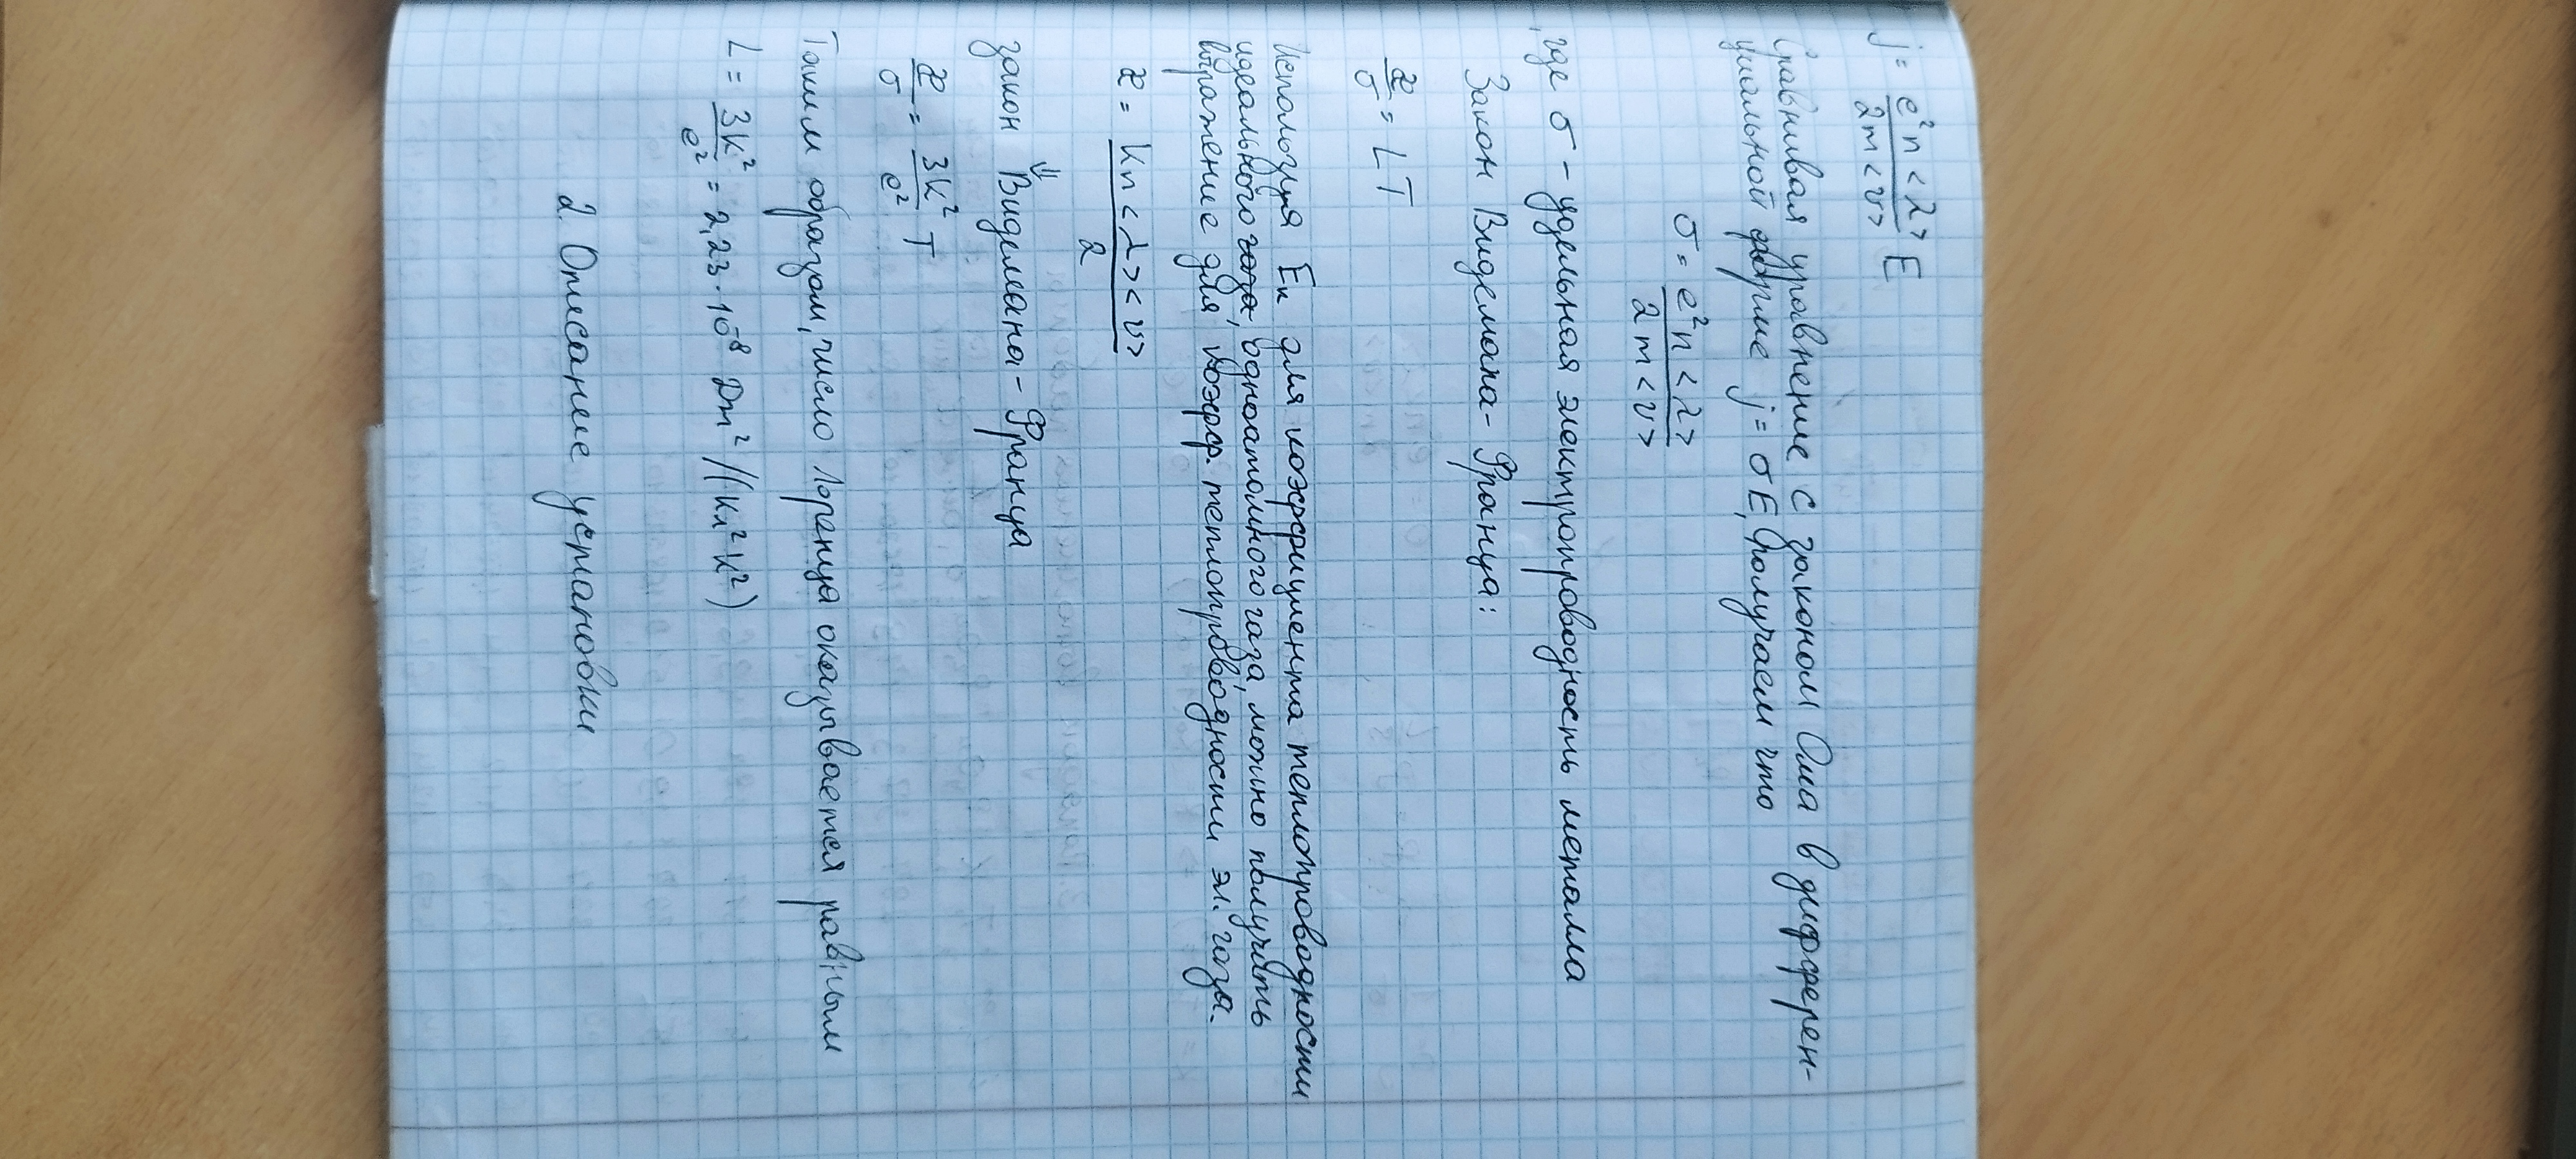 j = e²n<λ>/2m<v> E
Сравнивая уравнение с законом Ома в дифферен-
циальной форме j = σE, получаем что
σ = e²n<λ>/2m<v>
, где σ - удельная электропроводность металла
Закон Видемана-Франца:
æ/σ = LT
Используя Eк для коэффициента теплопроводности
идеального газа, одноатомного газа, можно получить
выражение для коэфф. теплопроводности эл. газа.
æ = kn<λ><v>/2
⇓
закон Видемана-Франца
æ/σ = 3k²/e² T
Таким образом, число Лоренца оказывается равным
L = 3k²/e² = 2,23·10⁻⁸ Dm²/(Кл²К²)
2. Описание установки